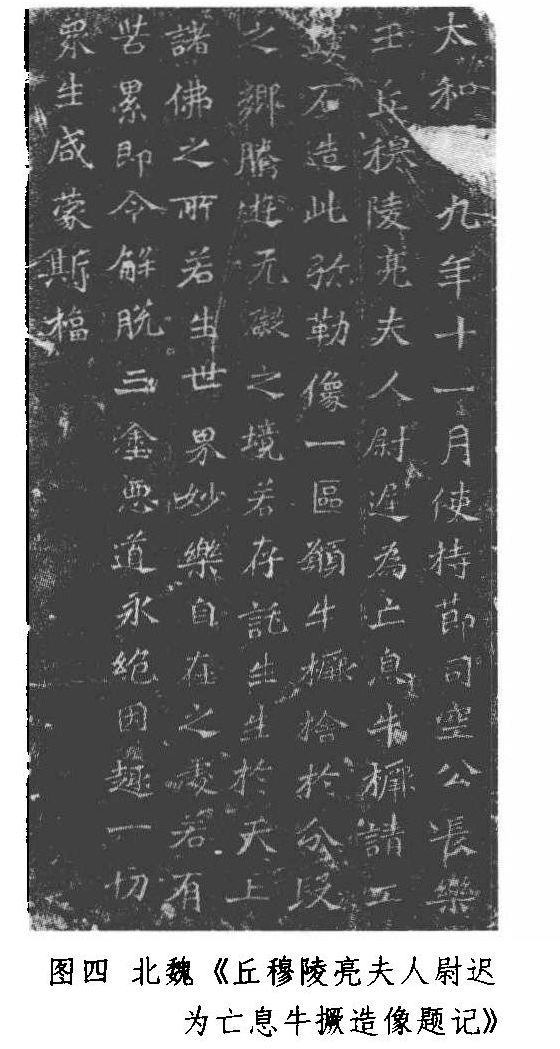 太和 九年十一月使持節司空公長樂
王丘穆陵亮夫人尉遲為亡息牛橛請工
鏤石造此弥勒像一區願牛橛捨於分段
之鄉騰遊无礙之境若存託生生於天上
諸佛之所若生世界妙樂自在之處若有
苦累即令解脱三塗惡道永絶因趣一切
衆生咸蒙斯福
图四 北魏《丘穆陵亮夫人尉迟
为亡息牛撅造像题记》